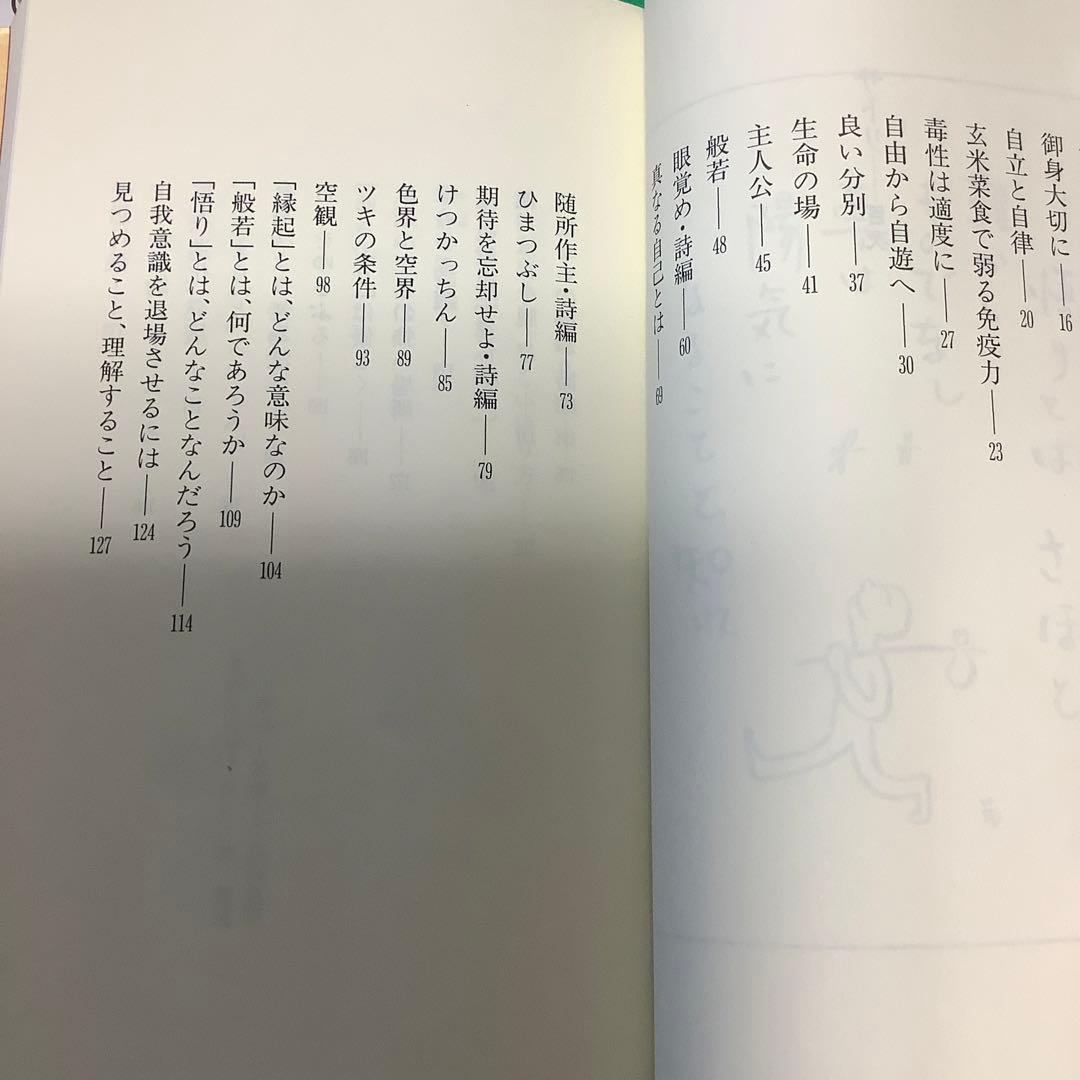 御身大切に──16
自立と自律──20
玄米菜食で弱る免疫力──23
毒性は適度に──27
自由から自遊へ──30
良い分別──37
生命の場──41
主人公──45
般若──48
眼覚め・詩編──60
真なる自己とは──69
随所作主・詩編──73
ひまつぶし──77
期待を忘却せよ・詩編──79
けつかっちん──85
色界と空界──89
ツキの条件──93
空観──98
「縁起」とは、どんな意味なのか──104
「般若」とは、何であろうか──109
「悟り」とは、どんなことなんだろう──114
自我意識を退場させるには──124
見つめること、理解すること──127